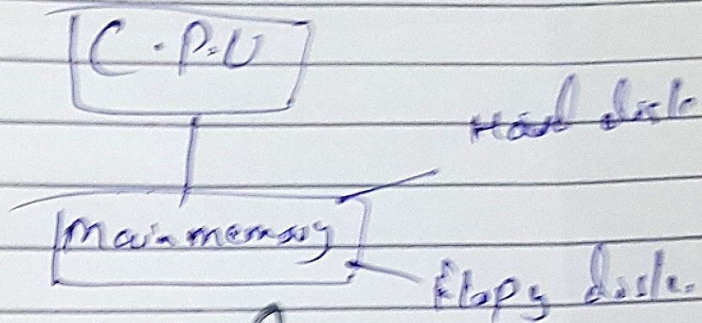 C.P.U
Hard disk
Main memory
Flopy disk.